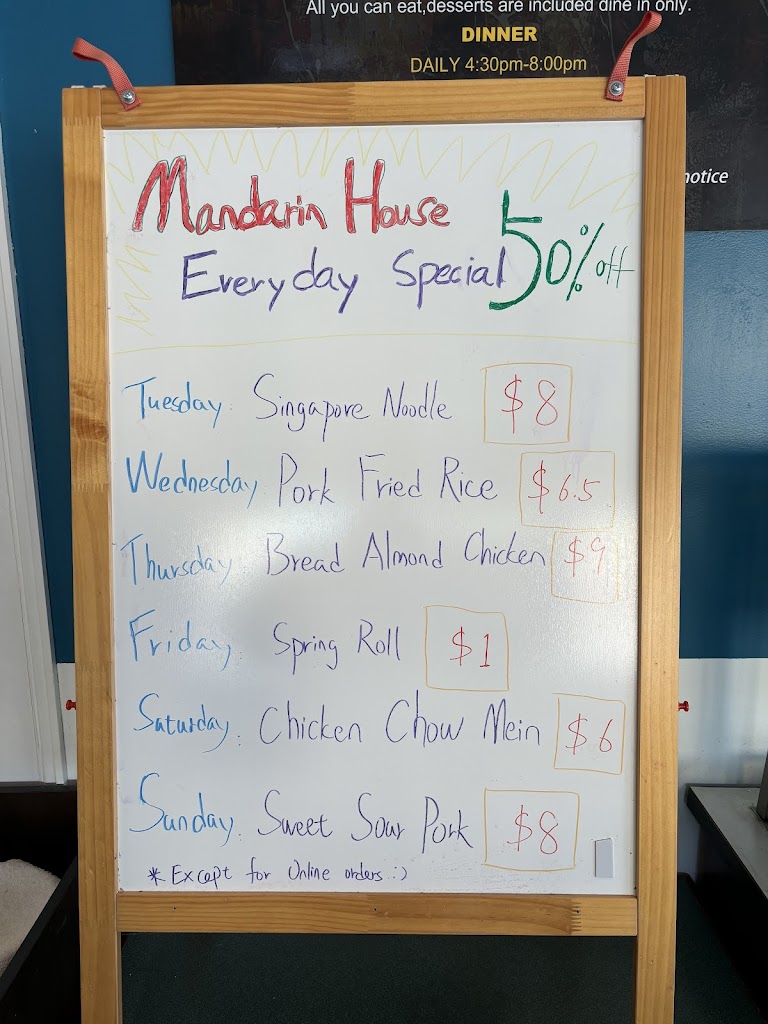 All you can eat,desserts are included dine in only.
DINNER
DAILY 4:30pm-8:00pm
notice
Mandarin House
Everyday Special 50% off
Tuesday: Singapore Noodle $8
Wednesday: Pork Fried Rice $6.5
Thursday: Bread Almond Chicken $9
Friday: Spring Roll $1
Saturday: Chicken Chow Mein $6
Sunday: Sweet Sour Pork $8
* Except for Online orders :)